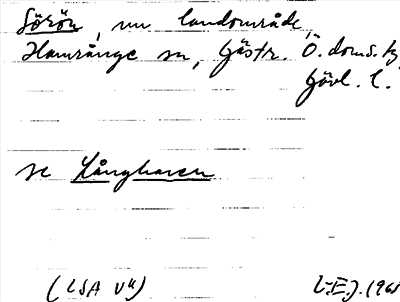 Sörön, nu landområde,
Hamrånge sn, Gästr. Ö. doms. tg,
Gävl. l.
se Långharen
(LSA V4)
L-E.J. 196